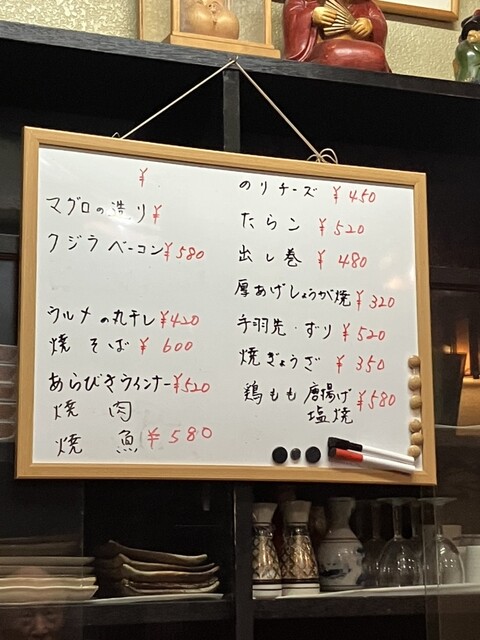 ¥
マグロの造り¥
クジラベーコン¥580
ウルメの丸干し¥420
焼そば¥600
あらびきウインナー¥520
焼肉
焼魚¥580
のりチーズ ¥450
たらこ ¥520
出し巻 ¥480
厚あげしょうが焼¥320
手羽先・ずり¥520
焼ぎょうざ ¥350
鶏もも 唐揚げ¥580
塩焼